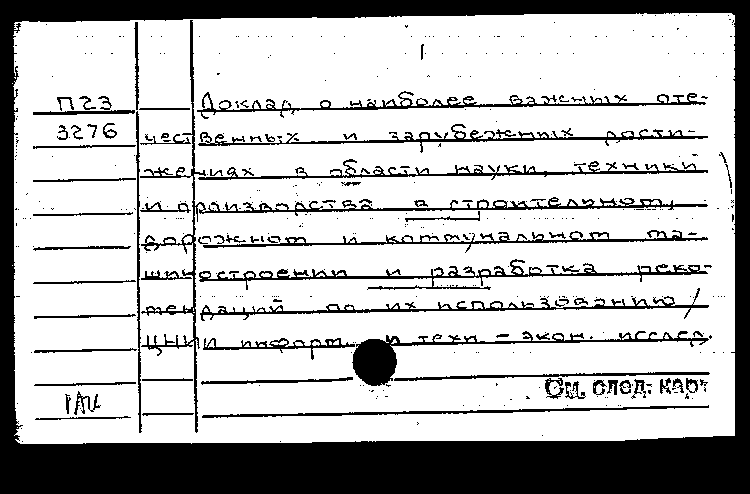 1
П23 Доклад о наиболее важных оте-
3276 чественных и зарубежных дости-
жениях в области науки, техники
и производства в строительном,
дорожном и коммунальном ма-
шиностроении и разработка реко-
мендаций по их использованию /
ЦНИИ информ. и техн-экон. исслед.
См. след. карт